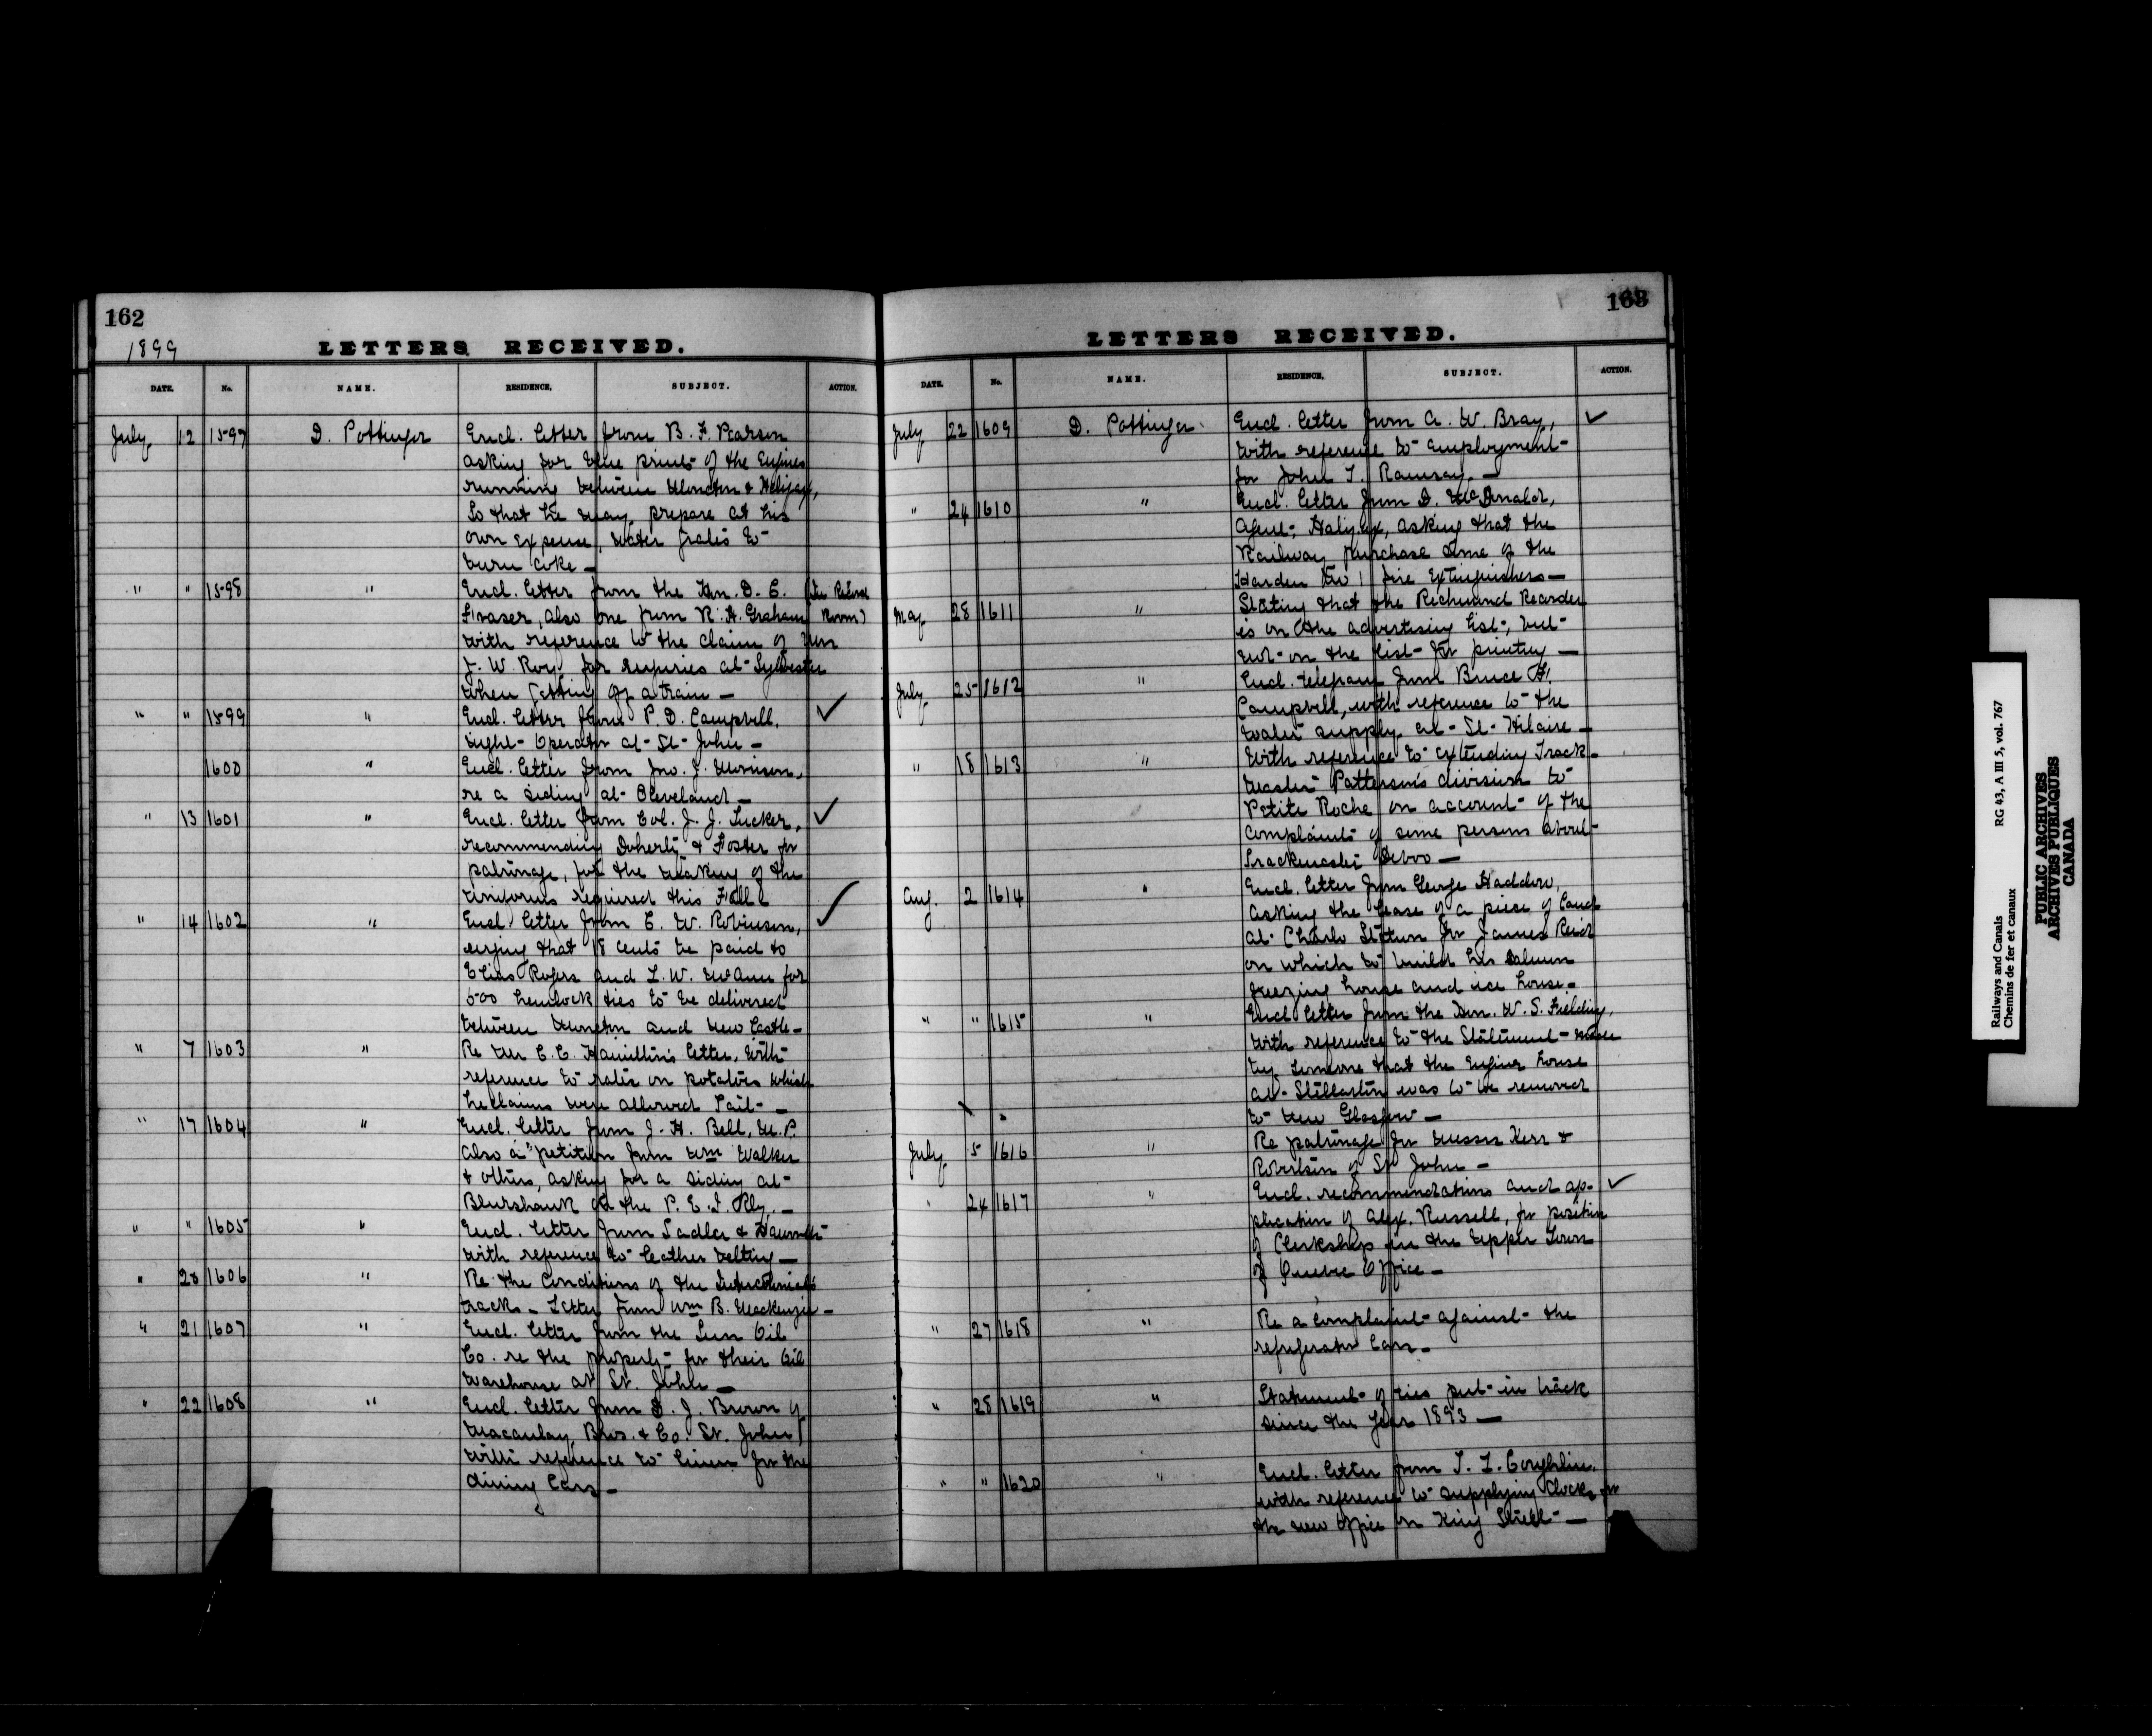 162
1899
LETTERS RECEIVED.
DATE. No. NAME. RESIDENCE. SUBJECT. ACTION.
July 12 1597 D. Pottinger Encl. letter from B. F. Pearson
asking for blue prints of the Engines
running between Moncton & Halifax,
So that he may prepare at his
own expense, water grates to
burn coke —
" " 1598 " Encl. letter from the Hon. D. C. (In Record
Fraser, also one from R. H. Graham Room)
with reference to the claim of
J. W. Roy for injuries at Sylvester
when getting off a train —
" " 1599 " Encl. letter from P. D. Campbell, ✓
night Operator at St. John —
1600 " Encl. letter from Jno. J. Morrison,
re a siding at Cleveland —
" 13 1601 " Encl. letter from Col. J. J. Tucker, ✓
recommending Doherty & Foster for
patronage, for the making of the
uniforms required this Fall
" 14 1602 " Encl. letter from C. W. Robinson, ✓
urging that 18 cents be paid to
Elias Rogers and L. W. for
500 hemlock ties to be delivered
between Moncton and New Castle —
" 7 1603 " Re Mr C. C. Hamilton's letter, with
reference to rates on potatoes which
he claims were allowed Tait —
" 17 1604 " Encl. letter from J. H. Bell, M. P.
also a petition from Wm Walker
& others, asking for a siding at
on the P. E. I. Rly. —
" " 1605 " Encl. letter from Sadler & Haworth
with reference to leather belting —
" 20 1606 " Re the conditions of the Intercolonial
tracks — Letter from Wm B. Mackenzie —
" 21 1607 " Encl. letter from the Sun Oil
Co. re the property for their Oil
Warehouse at St. John —
" 22 1608 " Encl. letter from D. J. Brown of
Macaulay Bros. & Co. St. John
with reference to linen for the
dining Cars —
163
LETTERS RECEIVED.
DATE. No. NAME. RESIDENCE. SUBJECT. ACTION.
July 22 1609 D. Pottinger Encl. letter from A. W. Bray, ✓
with reference to employment
for John T. Ramsay. —
" 24 1610 " Encl. letter from D. McDonald,
Agent, Halifax, asking that the
Railway purchase some of the
Harden No 1 fire Extinguishers —
May 28 1611 " Stating that the Richmond Recorder
is on the advertising list, but
not on the list for printing —
July 25 1612 " Encl. telegram from Bruce
Campbell, with reference to the
water supply at St. Hilaire —
" 18 1613 " With reference to extending Track-
master Patterson's division to
Petite Roche on account of the
complaints of some persons about
Trackmaster —
Aug. 2 1614 " Encl. letter from George Haddow,
asking the lease of a piece of land
at Charlo Station for James Reid
on which to build his salmon
freezing house and ice house —
" " 1615 " Encl. letter from the Hon. W. S. Fielding,
with reference to the Statement made
by someone that the Engine house
at Stellarton was to be removed
to New Glasgow —
July 5 1616 " Re patronage for Messrs Kerr &
Robertson of St John —
" 24 1617 " Encl. recommendations and ap- ✓
plication of Alex. Russell, for position
of Clerkship in the Upper Town
of Quebec Office —
" 27 1618 " Re a complaint against the
refrigerator Cars —
" 28 1619 " Statement of ties put in track
since the year 1893 —
" " 1620 " Encl. letter from T. L. Coughlin,
with reference to supplying Clocks for
the new office on King Street —
Railways and Canals RG 43, A III 5, vol. 767
Chemins de fer et canaux
PUBLIC ARCHIVES
ARCHIVES PUBLIQUES
CANADA